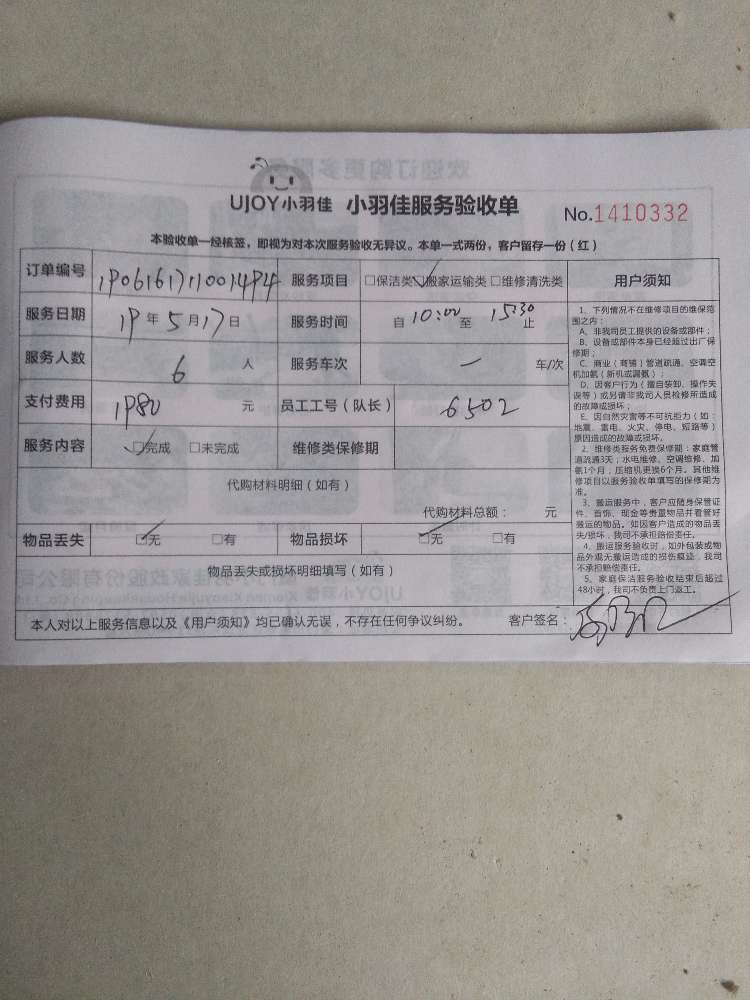 UJOY小羽佳 小羽佳服务验收单 No.1410332
本验收单一经核签，即视为对本次服务验收无异议。本单一式两份，客户留存一份（红）
订单编号 服务项目 □保洁类 □搬家运输类 □维修清洗类
服务日期 19年5月17日 服务时间 自10:00至15:30止
服务人数 6人 服务车次 一 车/次
支付费用 1980元 员工工号（队长） 6502
服务内容 □完成 □未完成 维修类保修期
代购材料明细（如有）
代购材料总额： 元
物品丢失 □无 □有 物品损坏 □无 □有
物品丢失或损坏明细填写（如有）
本人对以上服务信息以及《用户须知》均已确认无误，不存在任何争议纠纷。 客户签名：
用户须知
1、下列情况不在维修项目的维保范
围之内：
A、非我司员工提供的设备或部件；
B、设备或部件本身已经超过出厂保
修期；
C、商业（商铺）管道疏通、空调空
机加氨（新机或漏氨）；
D、因客户行为（擅自装卸、操作失
误等）或另请非我司人员检修所造成
的故障或损坏；
E、因自然灾害等不可抗拒力（如：
地震、雷电、火灾、停电、短路等）
原因造成的故障或损坏。
2、维修类服务免费保修期：家庭管
道疏通3天；水电维修、空调维修、加
氨1个月；压缩机更换6个月。其他维
修项目以服务验收单填写的保修期为
准。
3、搬运服务中，客户应随身保管证
件、首饰、现金等贵重物品并看管好
搬运的物品。如因客户造成的物品丢
失/损坏，我司不承担赔偿责任。
4、搬运服务验收时，如外包装或物
品外观无搬运造成的损伤痕迹，我司
不承担赔偿责任。
5、家庭保洁服务验收结束后超过
48小时，我司不负责上门返工。